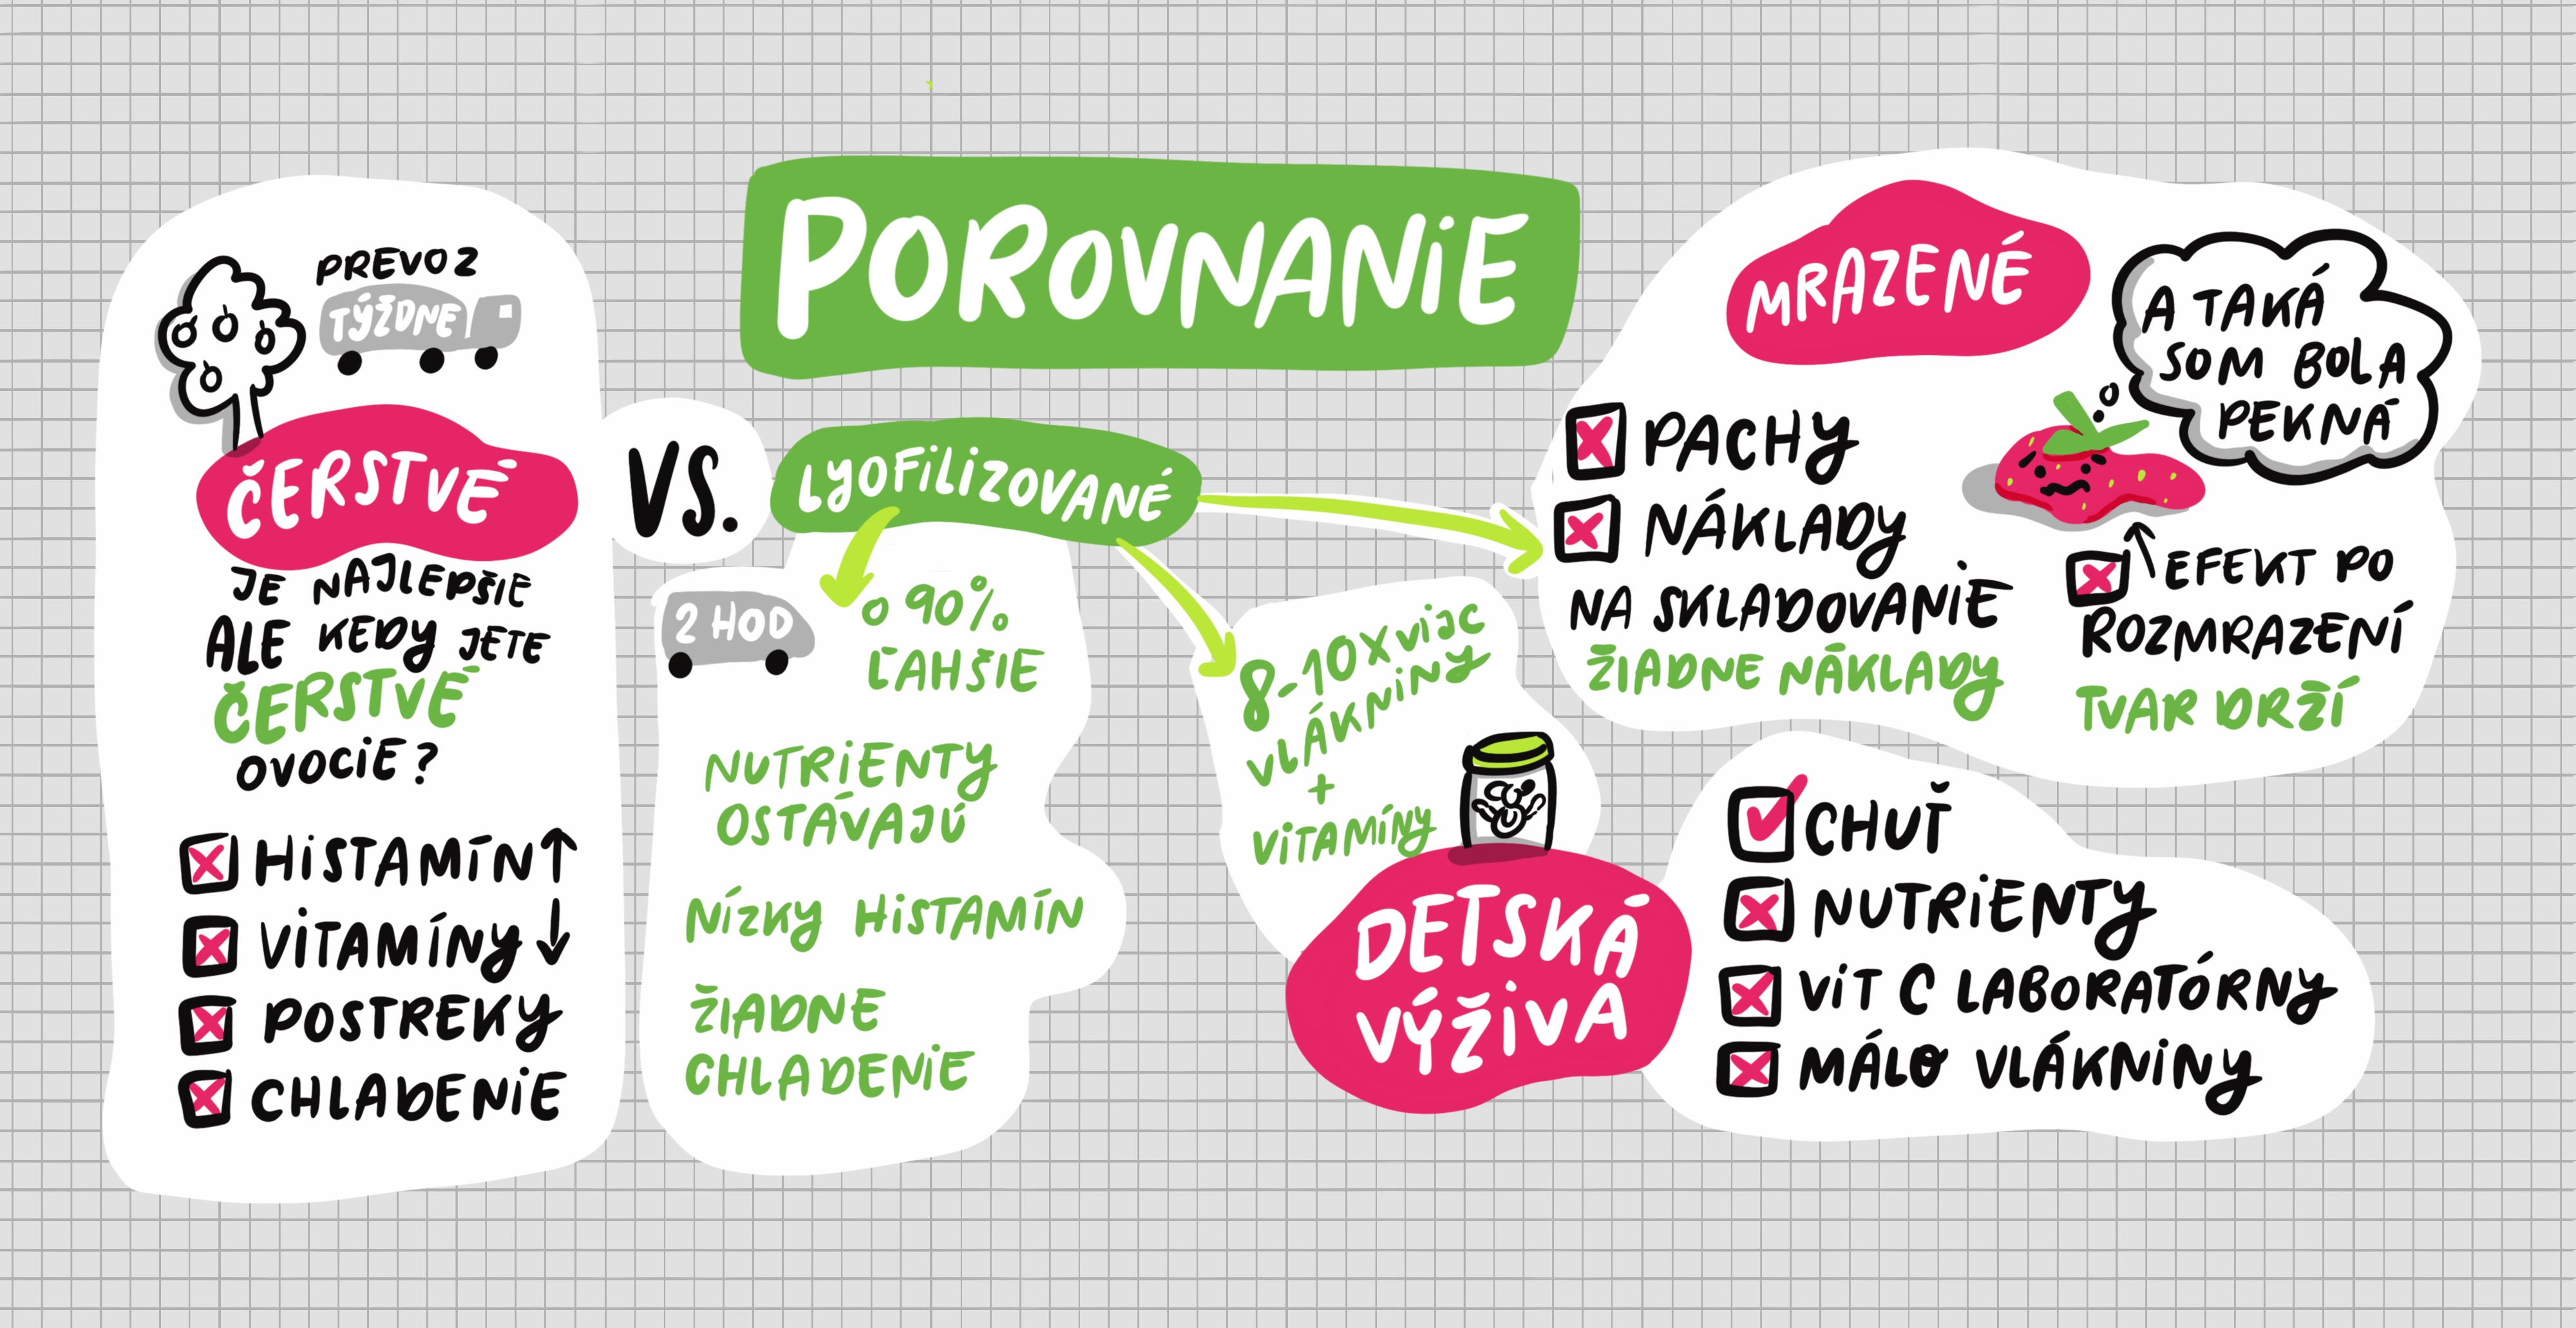 POROVNANIE
PREVOZ
TÝŽDNE
ČERSTVÉ
JE NAJLEPŠIE
ALE KEDY JETE
ČERSTVÉ
OVOCIE?
HISTAMÍN↑
VITAMÍNY↓
POSTREKY
CHLADENIE
VS.
LYOFILIZOVANÉ
2 HOD
O 90%
ĽAHŠIE
NUTRIENTY
OSTÁVAJÚ
NÍZKY HISTAMÍN
ŽIADNE
CHLADENIE
8-10X viac
VLÁKNINY
+
VITAMÍNY
DETSKÁ
VÝŽIVA
MRAZENÉ
A TAKÁ
SOM BOLA
PEKNÁ
PACHY
NÁKLADY
NA SKLADOVANIE
ŽIADNE NÁKLADY
EFEKT PO
ROZMRAZENÍ
TVAR DRŽÍ
CHUŤ
NUTRIENTY
VIT C LABORATÓRNY
MÁLO VLÁKNINY